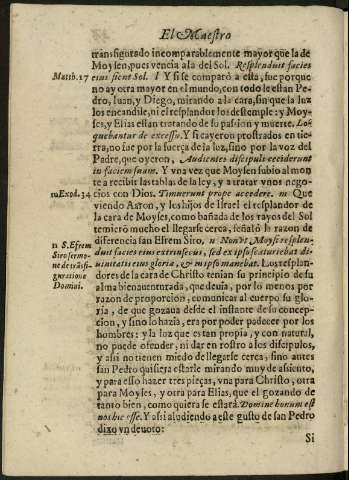 El Maestro
transfigurado incomparablemente mayor que la de
Moysen, pues vencia a la del Sol. Resplenduit facies
Matth. 17 eius sicut Sol. l Y si se comparò a esta, fue porque
no ay otra mayor en el mundo, con todo le estan Pe-
dro, Iuan, y Diego, mirando a la cara, sin que la luz
los encandile, ni el resplandor los destemple: y Moy-
ses, y Elias estan tratando de su passion y muerte. Lo-
quebantur de excessu. Y si cayeron prostrados en tie-
rra, no fue por la fuerça de la luz, sino por la voz del
Padre, que oyeron, Audientes discipuli ceciderunt
in faciem suam. Y vna vez que Moysen subio al mon
te a recibir las tablas de la ley, y a tratar vnos nego-
m Exod. 34 cios con Dios. Timuerunt prope accedere. m Que
viendo Aaron, y los hijos de Israel el resplandor de
la cara de Moyses, como bañada de los rayos del Sol
temierõ mucho el llegarse cerca, señalò la razon de
n S. Efrem
Siro sermo-
ne de trãsfi-
guratione
Domini.
diferencia san Efrem Siro, n Non vt Moysi resplen-
duit facies eius extrinsecus, sed ex ipso scaturiebat di-
uinitatis eius gloria, & in ipso manebat. Los resplan-
dores de la cara de Christo tenian su principio de su
alma bienauenturada, que deuia, por lo menos por
razon de proporcion, comunicar al cuerpo su glo-
ria, de que gozaua desde el instante de su concep-
cion, y sino lo hazia, era por poder padecer por los
hombres: y la luz que es tan propia, y con natural,
no puede ofender, ni dar en rostro a los discipulos,
y assi no tienen miedo de llegarse cerca, sino antes
san Pedro quisiera estarle mirando muy de assiento,
y para esso hazer tres pieças, vna para Christo, otra
para Moyses, y otra para Elias, que el gozando de
tanto bien, como quiera se estarà. Domine bonum est
nos hic esse. Y assi aludiendo a este gusto de san Pedro
dixo vn deuoto:
Si